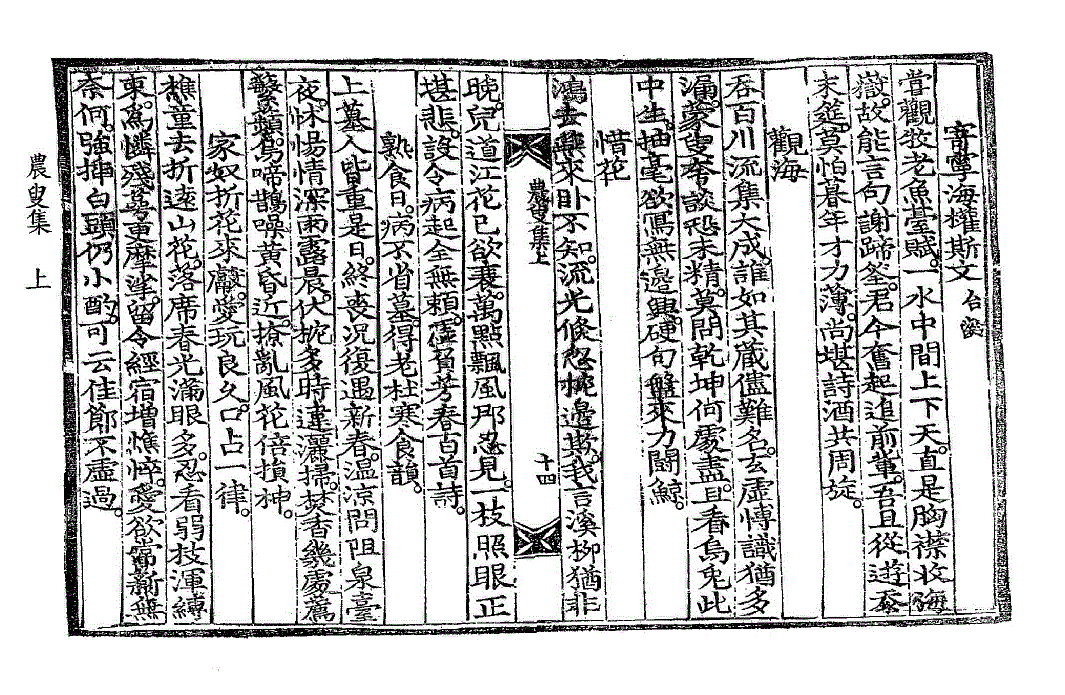 寄寧海權斯文 台淵
嘗觀牧老魚臺賦。一水中間上下天。直是胸襟收海
嶽。故能言句謝蹄筌。君今奮起追前輩。吾且從遊忝
末筵。莫怕暮年才力薄。尚堪詩酒共周旋。
觀海
吞百川流集大成。誰如其藏儘難名。玄虛愽識猶多
漏。蒙叟奢談恐未精。莫問乾坤何處盡。且看烏兎此
中生。抽毫欲寫無邊興。硬句盤來力鬪鯨。
惜花
鴻去燕來卧不知。流光倐忽枕邊欺。我言溪柳猶非
農叟集上
十四
晩。兒道江花已欲衰。萬點飄風那忍見。一枝照眼正
堪悲。設令病起全無賴。虛負芳春百首詩。
熟食日。病不省墓。得老杜寒食韻。
上墓人皆重是日。終喪况復遇新春。溫凉問阻泉臺
夜。怵惕情深雨露晨。伏枕多時違灑掃。焚香幾處薦
蘩蘋。烏啼鵲噪黃昏近。撩亂風花倍損神。
家奴折花來獻。愛玩良久。口占一律。
樵童去折遠山花。落席春光滿眼多。忍看弱枝渾縛
東。爲憐殘萼更摩挲。留令經宿增憔悴。愛欲常新無
奈何。強揷白頭仍小酌。可云佳節不虛過。
農叟集 上